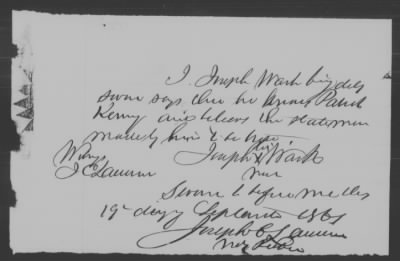 I Joseph Wash being duly
sworn says that he knows Patrick
Kenny and believes the statement
made by him to be true
his
Joseph X Wash
mark
Witness
J C Lawrence
Sworn to before me this
19 day of September 1861
Joseph C Lawrence